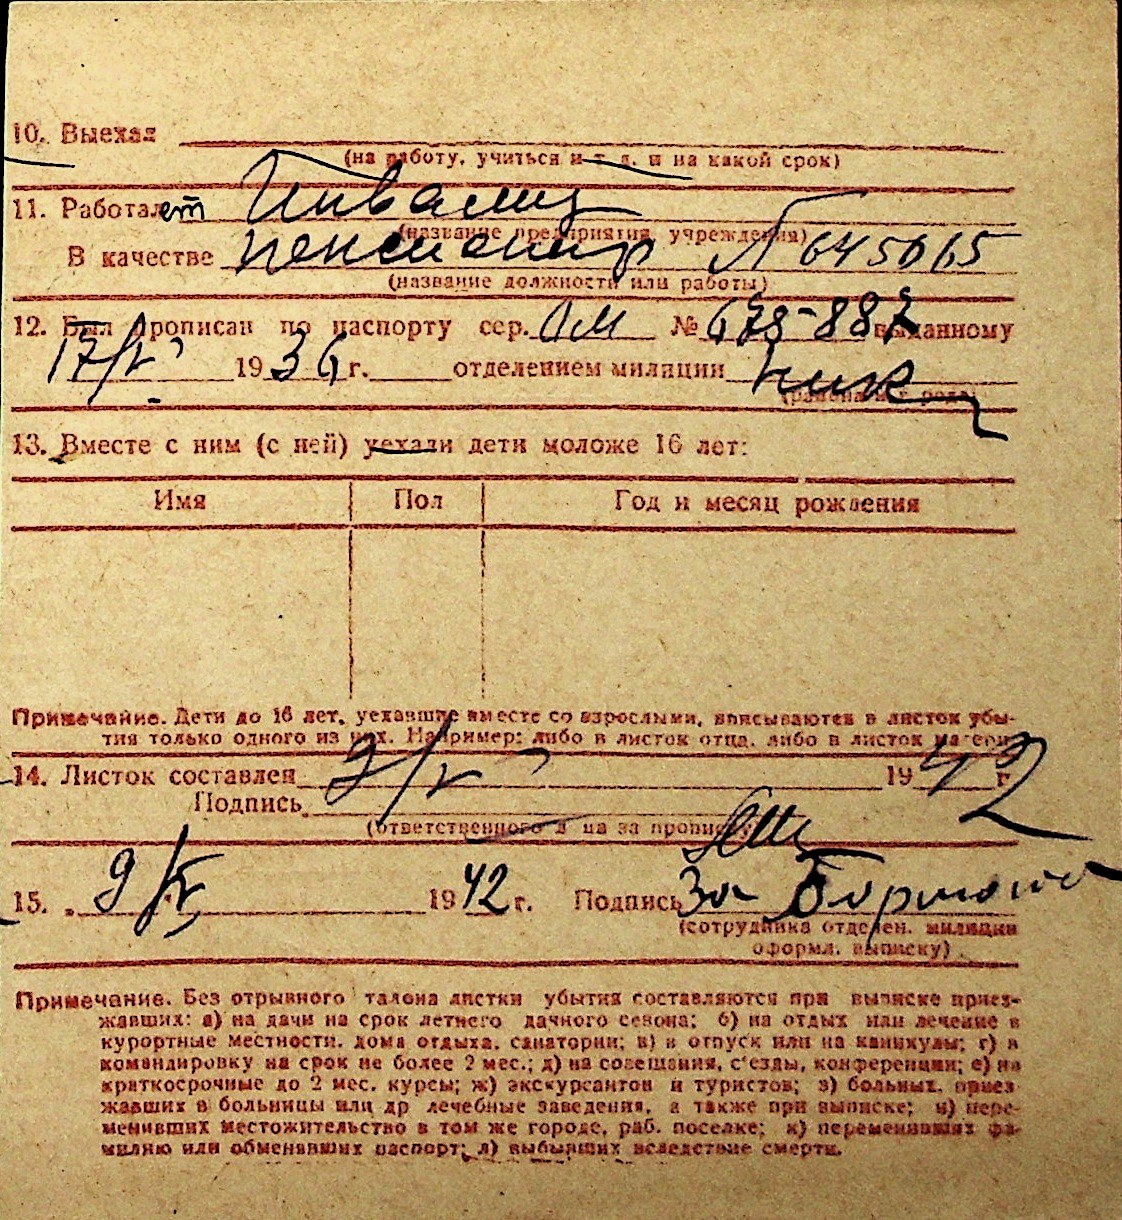 10. Выехал
(на работу, учиться и т. д. и на какой срок)
11. Работает Инвалид
(название предприятия учреждения)
В качестве пенсионер № 645065
(название должности или работы)
12. Был прописан по паспорту сер. ЛМ № 678-887 выданному
17/V 1936 г. отделением милиции
(района и города)
13. Вместе с ним (с ней) уехали дети моложе 16 лет:
Имя Пол Год и месяц рождения
Примечание. Дети до 16 лет, уехавшие вместе со взрослыми, вписываются в листок убы-
тия только одного из них. Например: либо в листок отца, либо в листок матери
14. Листок составлен 9/V 1942 г.
Подпись
(ответственного лица за прописку)
15. 9/V 1942 г. Подпись За
(сотрудника отделен. милиции
оформл. выписку)
Примечание. Без отрывного талона листки убытия составляются при выписке приез-
жавших: а) на дачи на срок летнего дачного сезона; б) на отдых или лечение в
курортные местности, дома отдыха, санатории; в) в отпуск или на каникулы; г) в
командировку на срок не более 2 мес.; д) на совещания, с'езды, конференции; е) на
краткосрочные до 2 мес. курсы; ж) экскурсантов и туристов; з) больных, приез-
жавших в больницы или др лечебные заведения, а также при выписке; и) пере-
менивших местожительство в том же городе, раб. поселке; к) переменивших фа-
милию или обменявших паспорт; л) выбывших вследствие смерти.